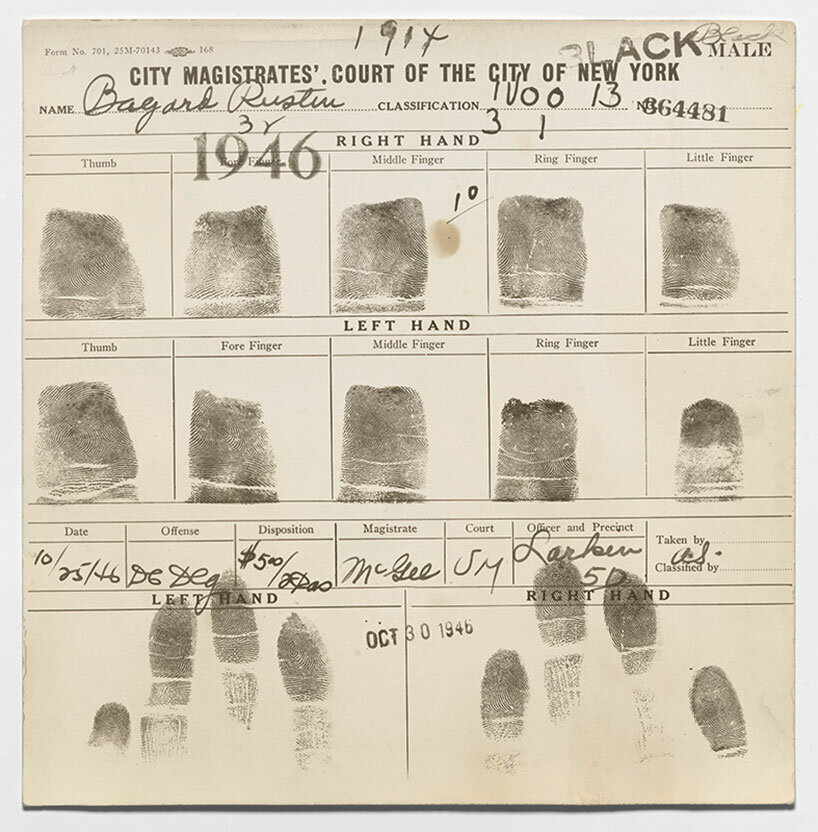 1914
Form No. 701, 25M-70143 168
BLACK Black MALE
CITY MAGISTRATES'. COURT OF THE CITY OF NEW YORK
NAME Bayard Rustin CLASSIFICATION 13 No. 864481
32 3 1
1946
RIGHT HAND
Thumb Fore Finger Middle Finger Ring Finger Little Finger
10
LEFT HAND
Thumb Fore Finger Middle Finger Ring Finger Little Finger
Date Offense Disposition Magistrate Court Officer and Precinct Taken by
10/25/46 $500/ McGee Larken Classified by
LEFT HAND RIGHT HAND
OCT 30 1946